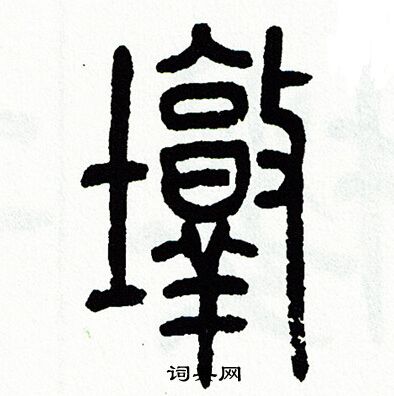 墩
词典网